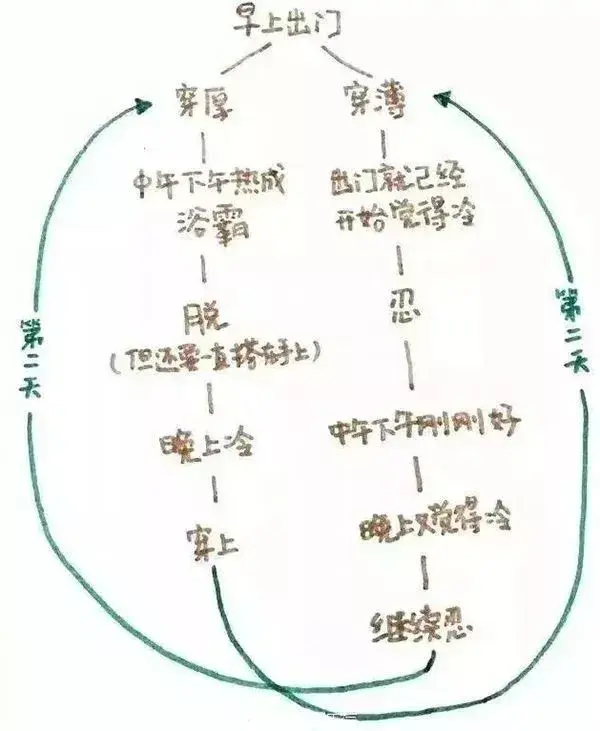 早上出门
穿厚
穿薄
中午下午热成
浴霸
出门就已经
开始觉得冷
脱
(但还要一直搭在手上)
忍
晚上冷
中午下午刚刚好
穿上
晚上又觉得冷
继续忍
第二天
第二天